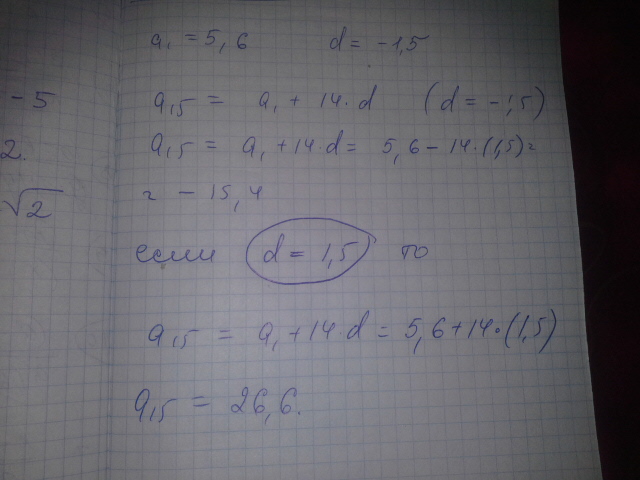 a₁ = 5,6 d = -1,5
-5
a₁₅ = a₁ + 14·d (d = -1,5)
2.
a₁₅ = a₁ + 14·d = 5,6 - 14·(1,5) =
√2
= - 15,4
если d = 1,5 то
a₁₅ = a₁ + 14·d = 5,6 + 14·(1,5)
a₁₅ = 26,6.